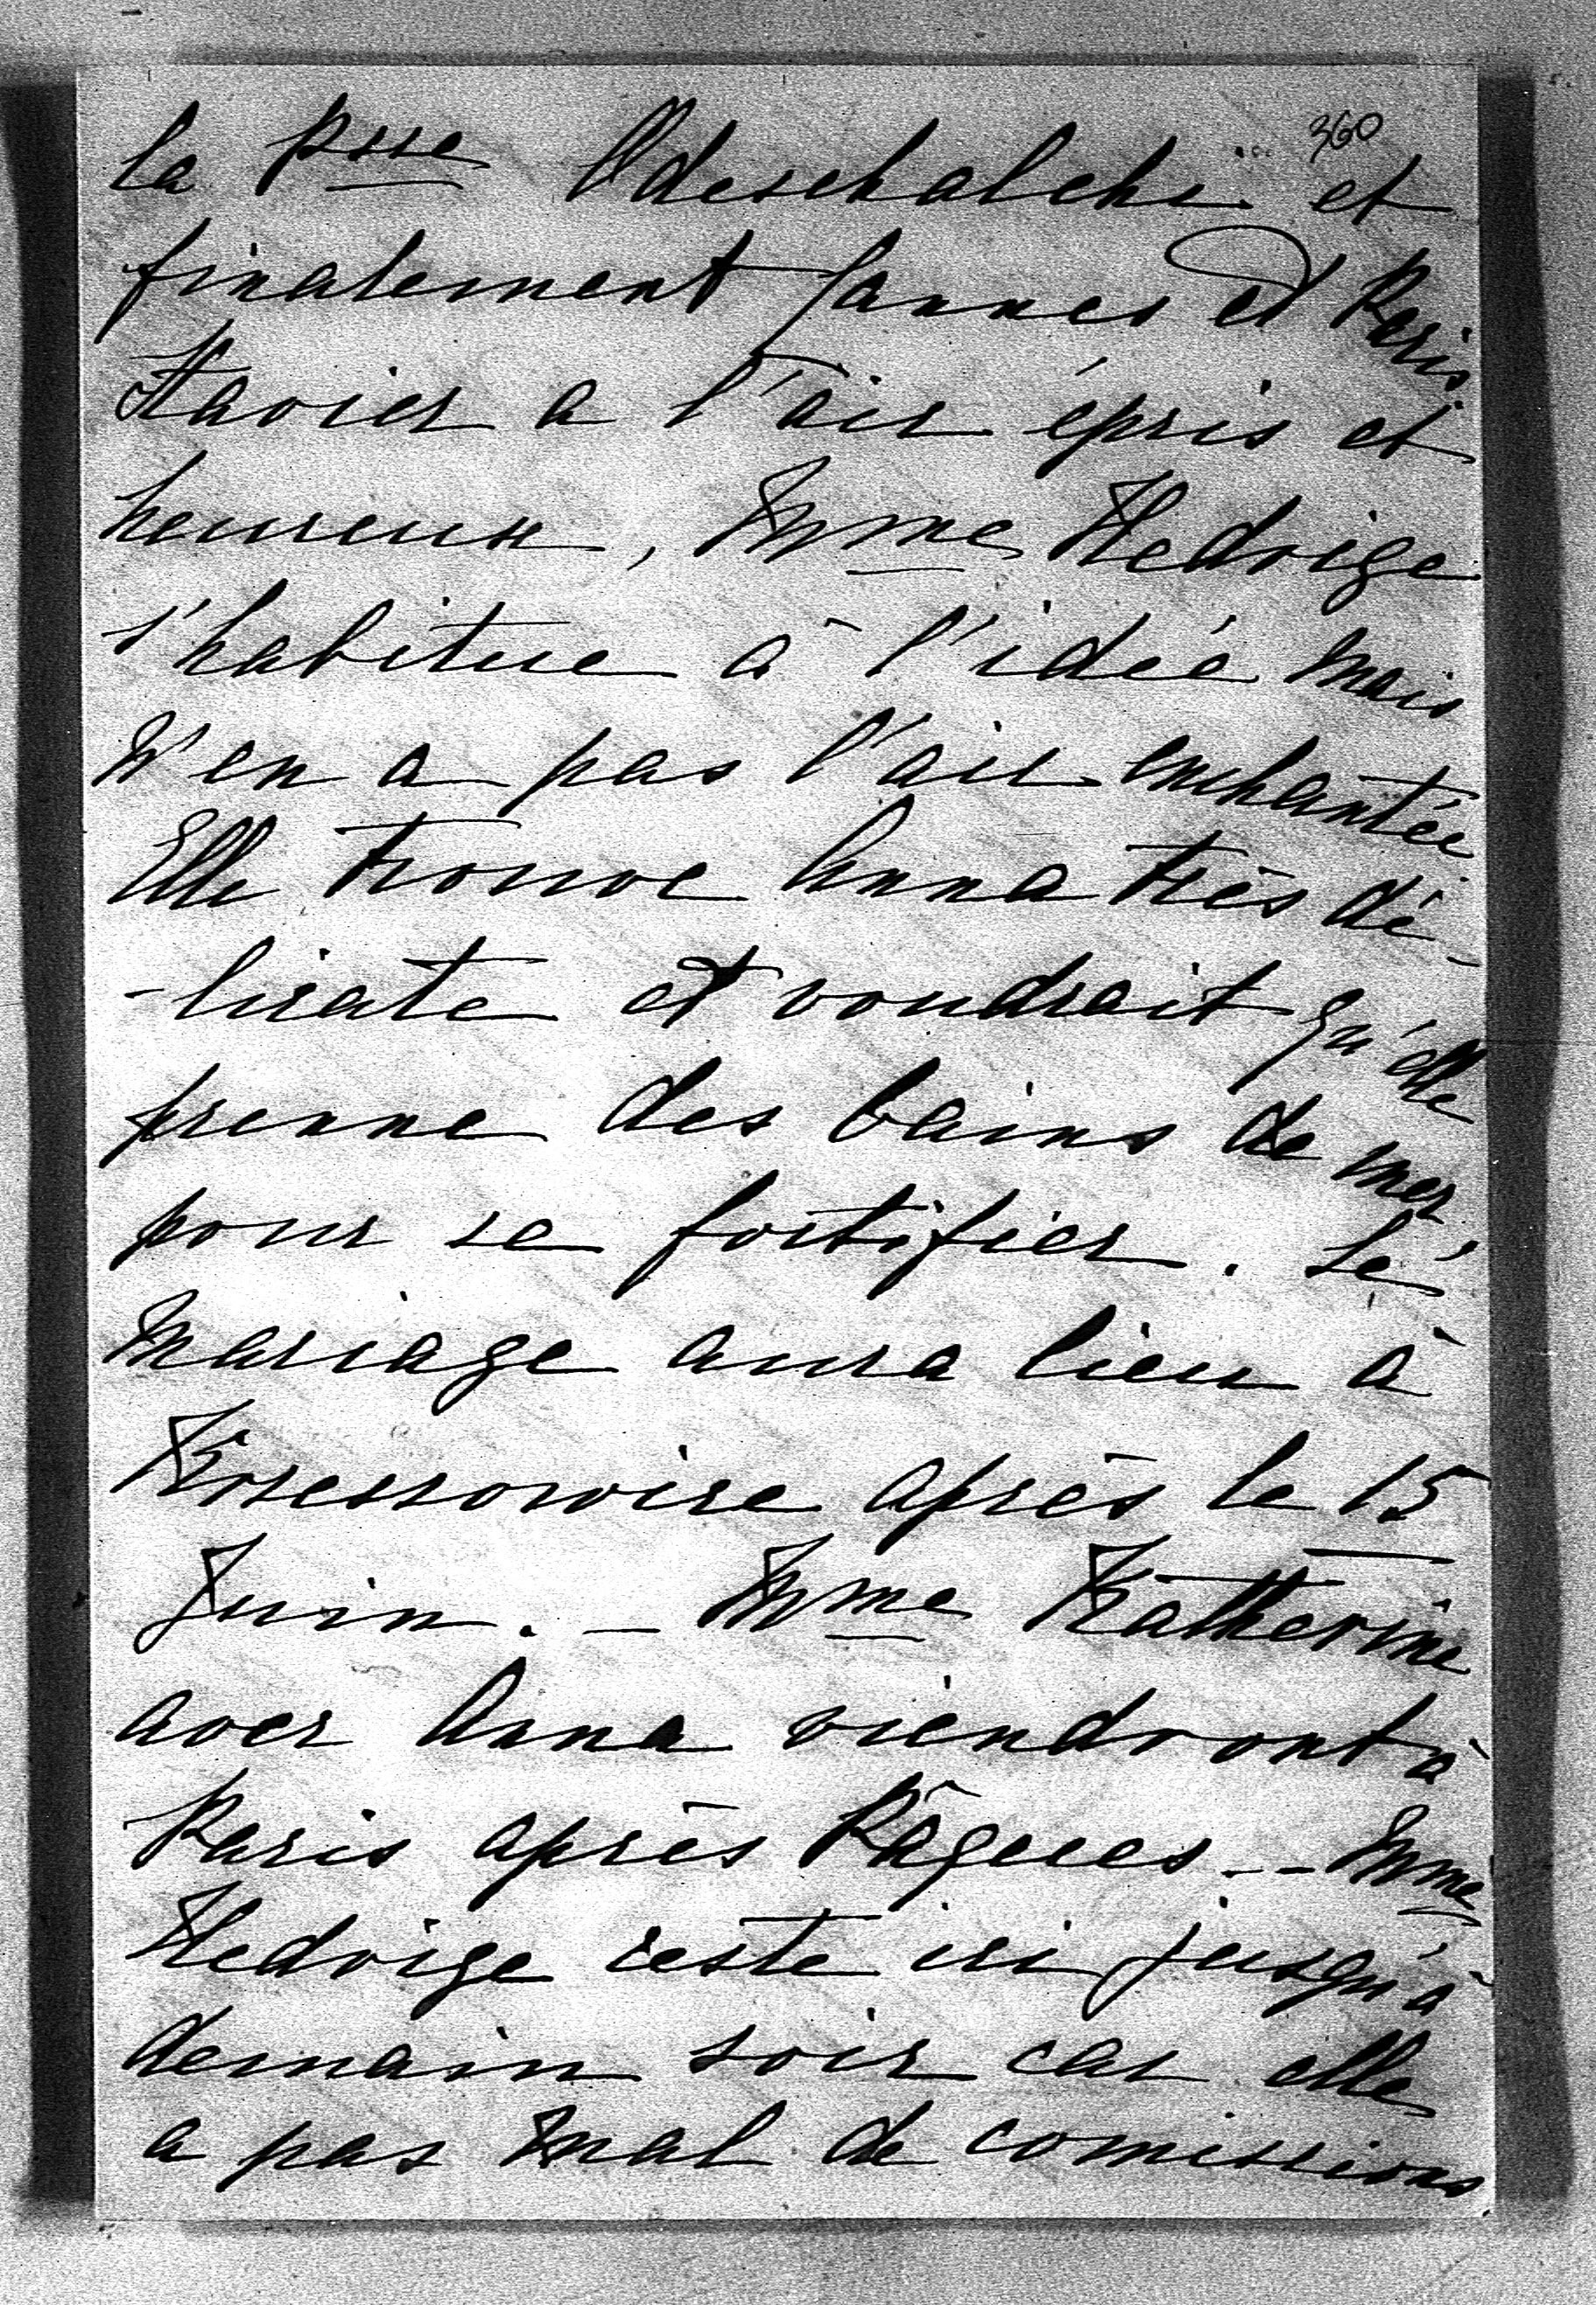 360
la Psse Odeschalchi et
finalement Cannes et Paris
Xavier a l'air épris et
heureux, Mme Hedvige
s'habitue à l'idée mais
n'en a pas l'air enchantée
Elle trouve Anna très dé-
-licate et voudrait qu'elle
prenne des bains de mer
pour se fortifier. Le
Mariage aura lieu à
après le 15
Juin. — Mme Katherine
avec Anna viendront à
Paris après Pâques. — Mme
Hedvige reste ici jusqu'à
demain soir car elle
a pas mal de comissions